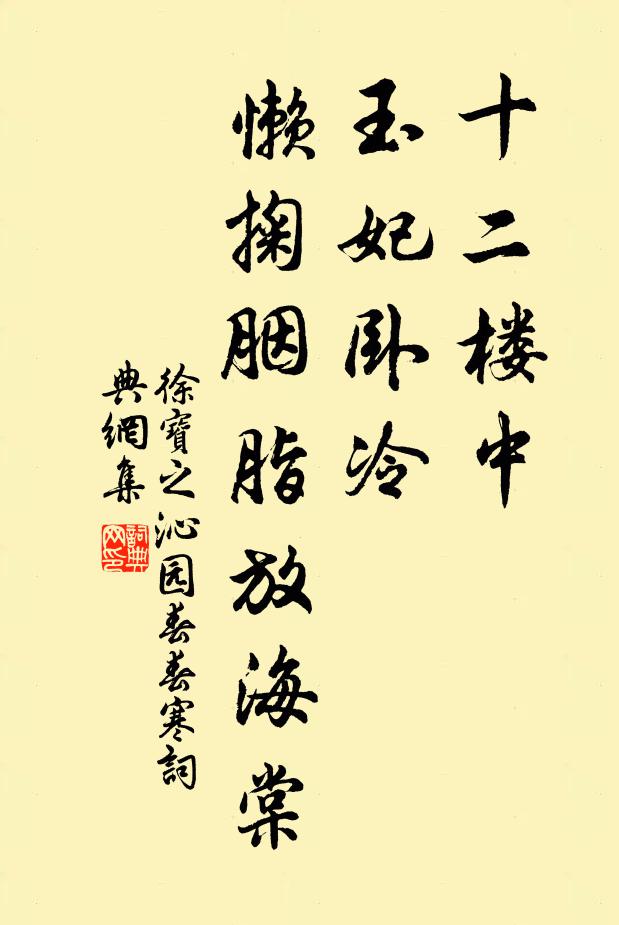 十二楼中
玉妃卧冷
懒掬胭脂放海棠
徐寶之沁园春春寒詞
典網集
詞典网印